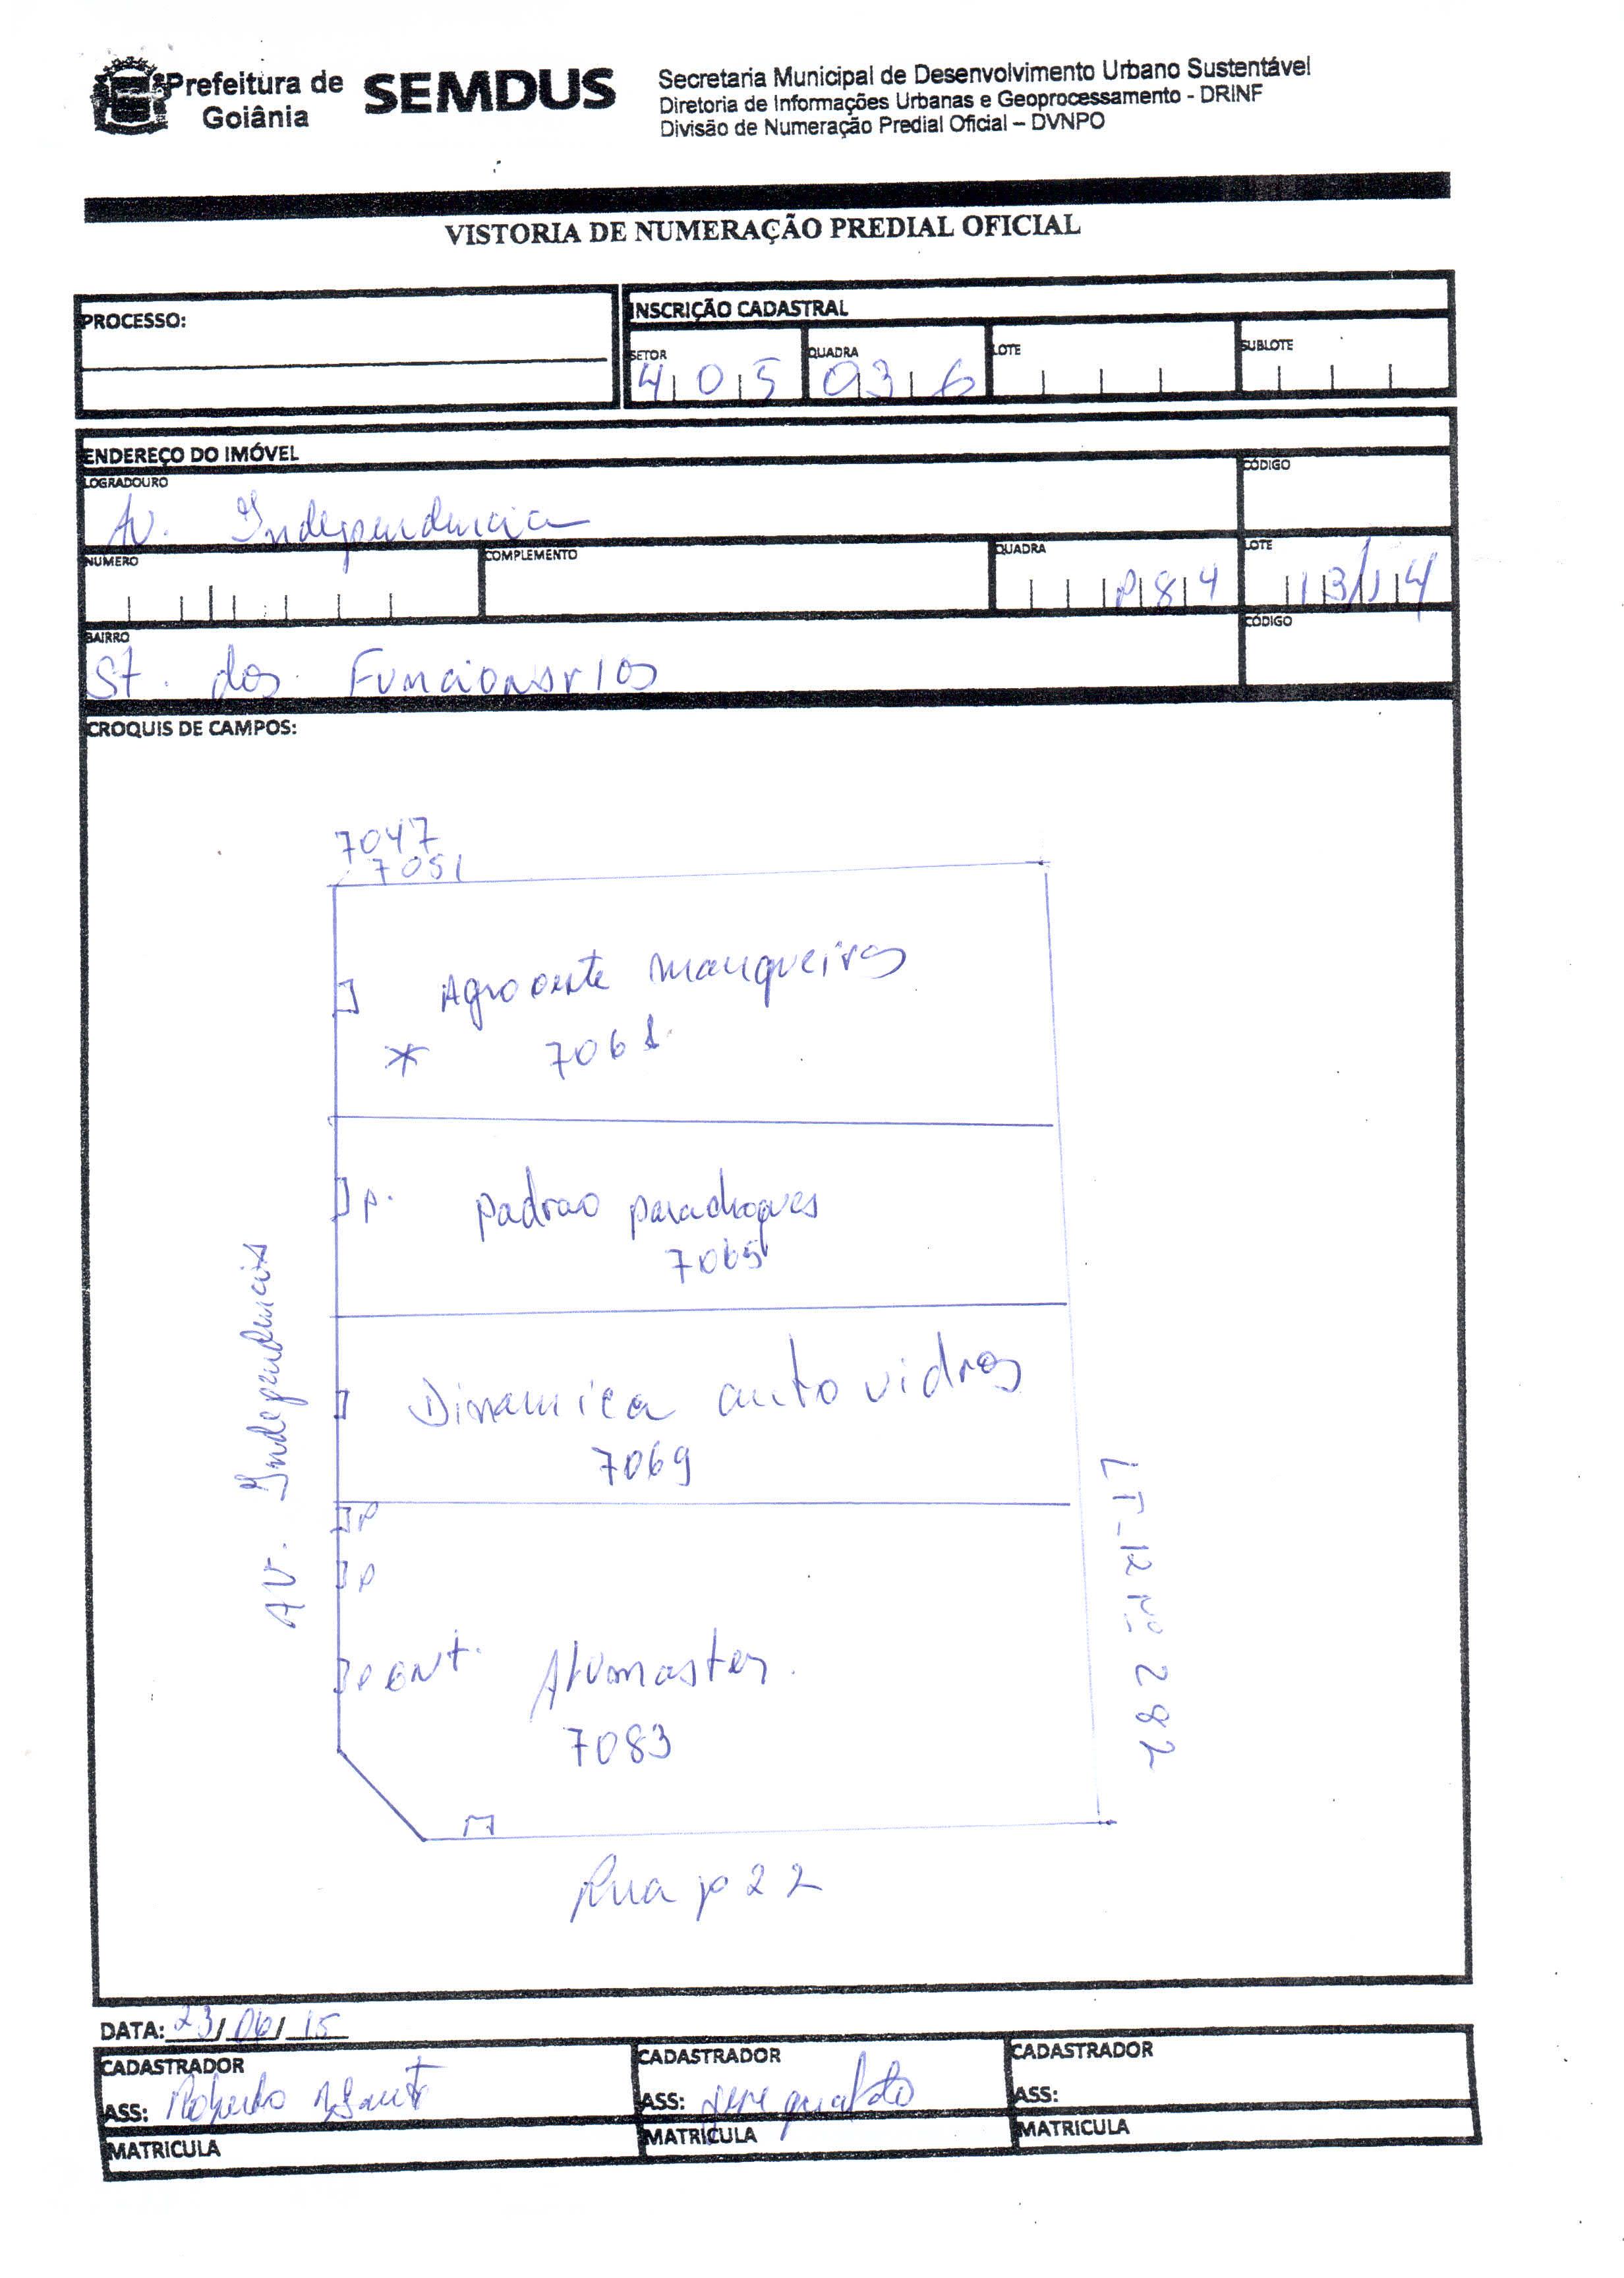 Prefeitura de
Goiânia
SEMDUS
Secretaria Municipal de Desenvolvimento Urbano Sustentável
Diretoria de Informações Urbanas e Geoprocessamento - DRINF
Divisão de Numeração Predial Oficial – DVNPO
VISTORIA DE NUMERAÇÃO PREDIAL OFICIAL
PROCESSO:
INSCRIÇÃO CADASTRAL
SETOR QUADRA LOTE SUBLOTE
405 036
ENDEREÇO DO IMÓVEL
LOGRADOURO CÓDIGO
Av. Independencia
NUMERO COMPLEMENTO QUADRA LOTE
P84 13/14
BAIRRO CÓDIGO
St. dos Funcionarios
CROQUIS DE CAMPOS:
7047
7051
Agro oeste mangueiras
* 7061
P. padrao parachoques
7065
AV. Independencia
Dinamica auto vidros
7069
P
P
LT-12 Nº 282
ent.
7083
Rua p22
DATA: 23/06/15
CADASTRADOR CADASTRADOR CADASTRADOR
ASS: Roberto ASS: ASS:
MATRICULA MATRICULA MATRICULA